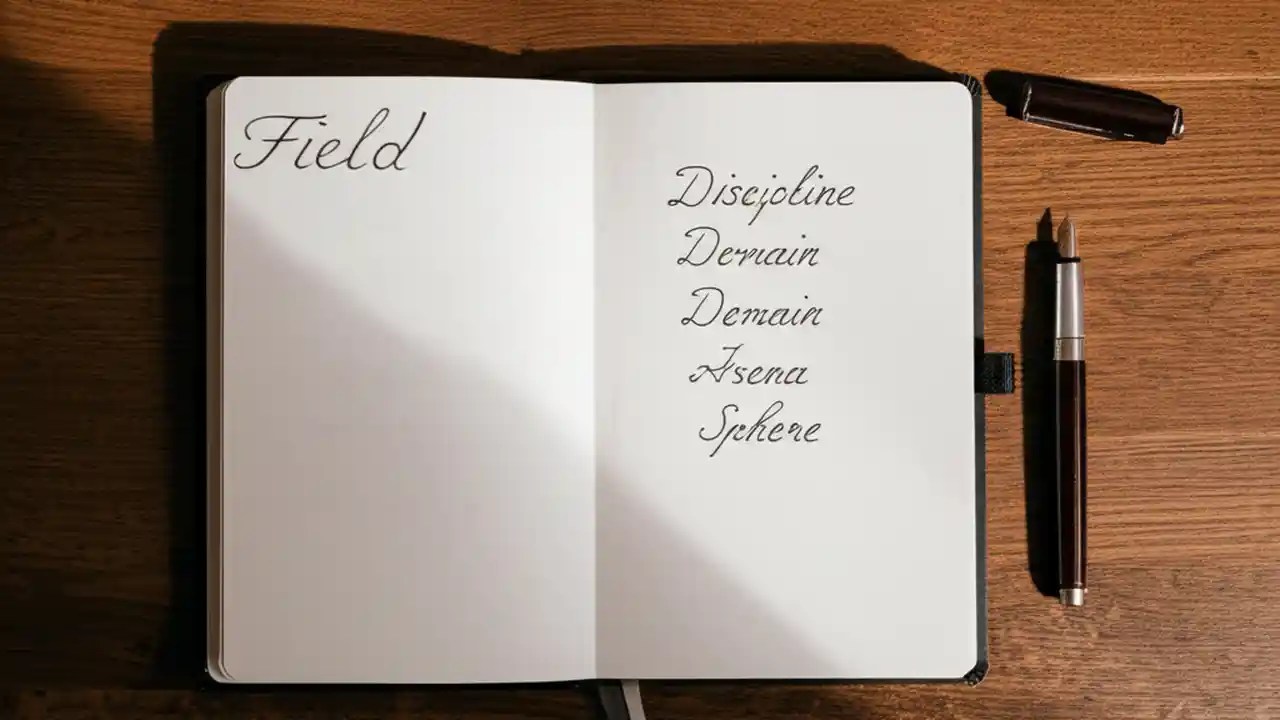 Field
Discipline
Demain
Demain
Asena
Sphere